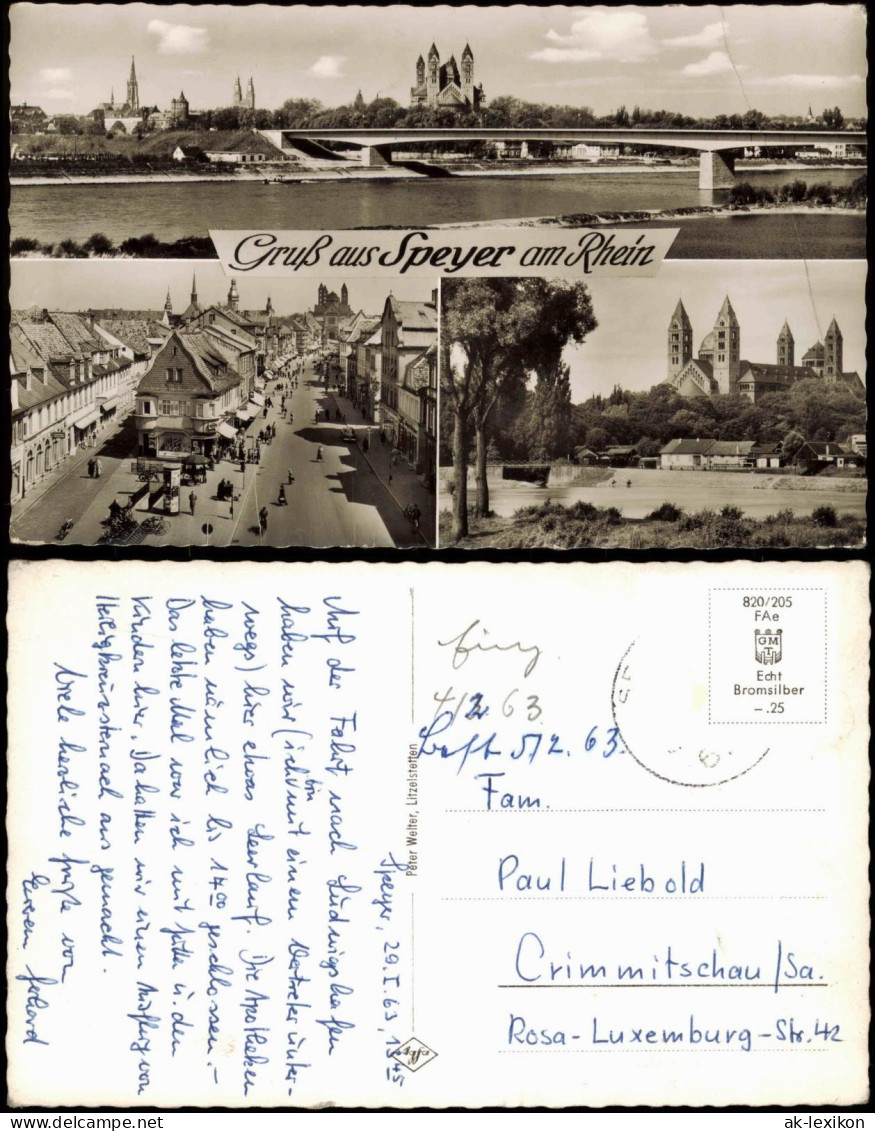 Gruß aus Speyer am Rhein
820/205
FAe
GM
T
Echt
Bromsilber
-.25
4/2 63
5/2. 63.
Fam.
Paul Liebold
Crimmitschau/Sa.
Rosa-Luxemburg-Str. 42
Peter Welter, Litzelstetten
Agfa
Speyer, 29.I.63, 13 45
Auf der Fahrt nach Ludwigshafen
haben wir (ich bin mit einem Vertreter unter-
wegs) hier etwas Leerlauf. Die Apotheken
haben nämlich bis 14 00 geschlossen.-
Das letzte Mal war ich mit u. den
Kindern hier. Da hatten wir einen Ausflug von
Heiligkreuzsteinach aus gemacht.
Viele herzliche Grüße von
Eurem Gerhard
ak-lexikon.com